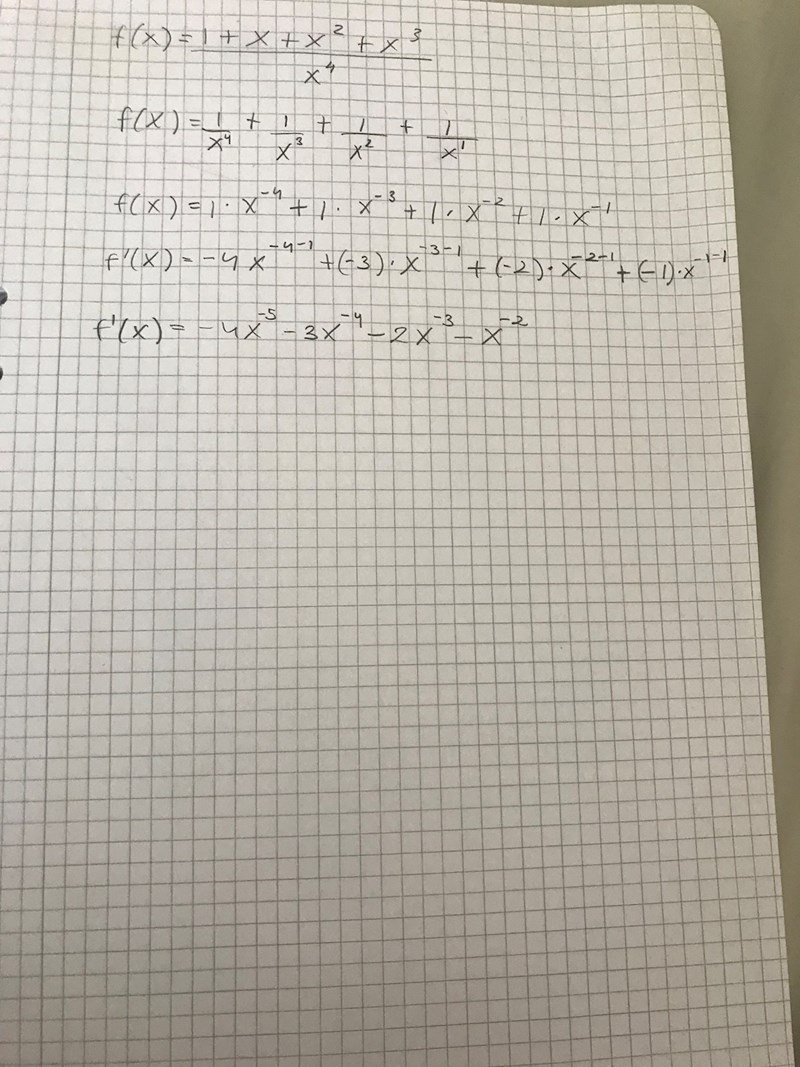 f(x) = (1 + x + x² + x³)/x⁴
f(x) = 1/x⁴ + 1/x³ + 1/x² + 1/x¹
f(x) = 1 · x⁻⁴ + 1 · x⁻³ + 1 · x⁻² + 1 · x⁻¹
f'(x) = -4x⁻⁴⁻¹ + (-3) · x⁻³⁻¹ + (-2) · x⁻²⁻¹ + (-1) · x⁻¹⁻¹
f'(x) = -4x⁻⁵ - 3x⁻⁴ - 2x⁻³ - x⁻²